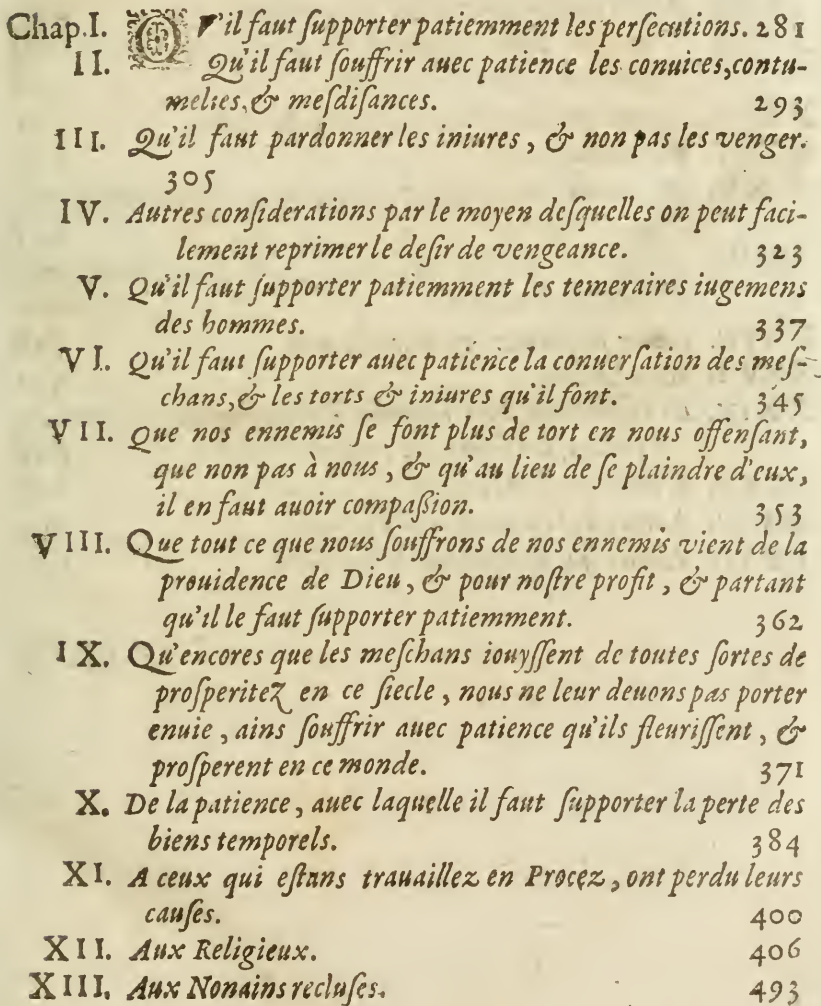 Chap.I. QV'il faut ſupporter patiemment les perſecutions. 281
II. Qu'il faut ſouffrir auec patience les conuices, contu-
melies, & meſdiſances. 293
III. Qu'il faut pardonner les iniures, & non pas les venger.
305
IV. Autres conſiderations par le moyen deſquelles on peut faci-
lement reprimer le deſir de vengeance. 323
V. Qu'il faut ſupporter patiemment les temeraires iugemens
des hommes. 337
VI. Qu'il faut ſupporter auec patience la conuerſation des meſ-
chans, & les torts & iniures qu'il font. 345
VII. Que nos ennemis ſe font plus de tort en nous offenſant,
que non pas à nous, & qu'au lieu de ſe plaindre d'eux,
il en faut auoir compaſſion. 353
VIII. Que tout ce que nous ſouffrons de nos ennemis vient de la
prouidence de Dieu, & pour noſtre profit, & partant
qu'il le faut ſupporter patiemment. 362
IX. Qu'encores que les meſchans iouyſſent de toutes ſortes de
proſperitez en ce ſiecle, nous ne leur deuons pas porter
enuie, ains ſouffrir auec patience qu'ils fleuriſſent, &
proſperent en ce monde. 371
X. De la patience, auec laquelle il faut ſupporter la perte des
biens temporels. 384
XI. A ceux qui eſtans trauaillez en Procez, ont perdu leurs
cauſes. 400
XII. Aux Religieux. 406
XIII. Aux Nonains recluſes. 493